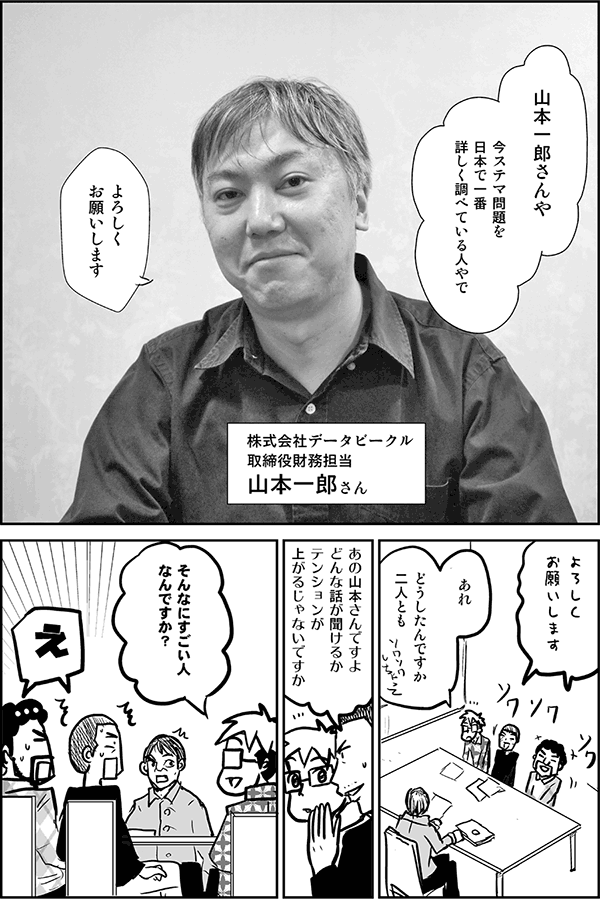 山本一郎さんや
今ステマ問題を
日本で一番
詳しく調べている人やで
よろしく
お願いします
株式会社データビークル
取締役財務担当
山本一郎さん
よろしく
お願いします
ソワ
ソワ
ソワ
あれ
どうしたんですか
二人とも
あの山本さんですよ
どんな話が聞けるか
テンションが
上がるじゃないですか
そんなにすごい人
なんですか?
え